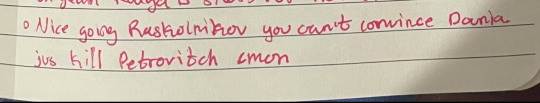 o Nice going Raskolnikov you can't convince Dounia
jus kill Petrovitch cmon